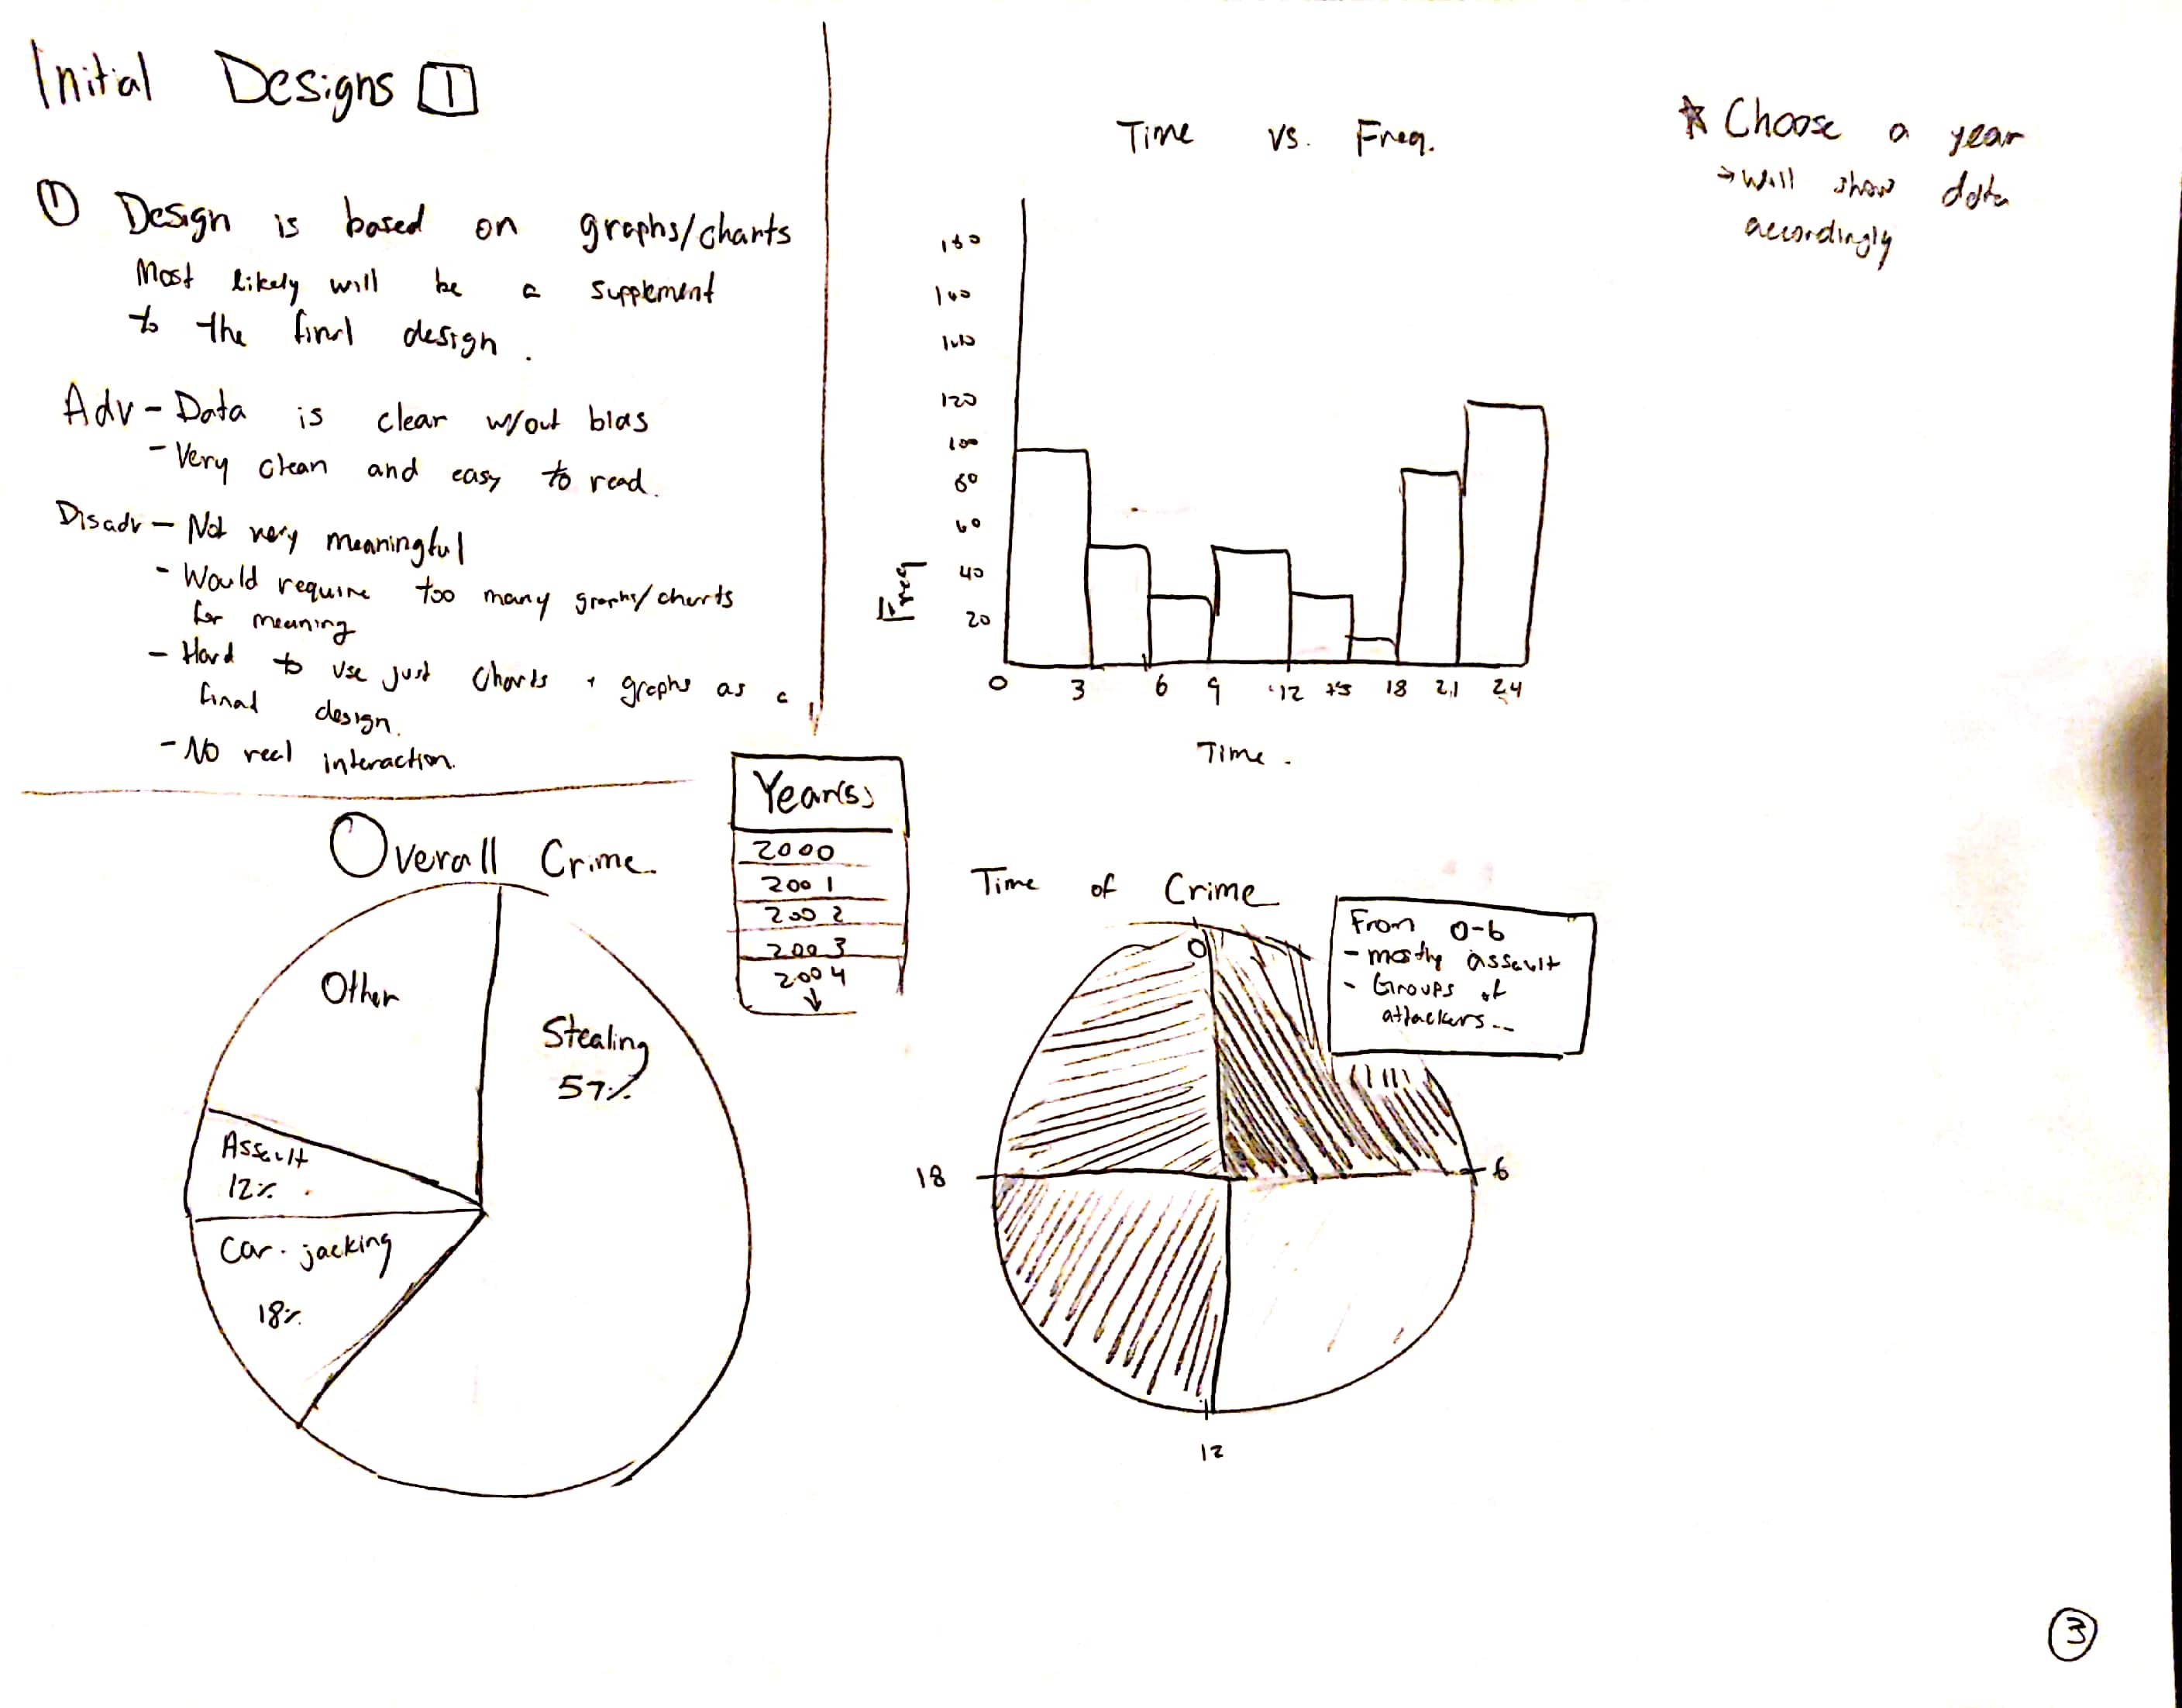 Initial Designs 1
① Design is based on graphs/charts
Most likely will be a supplement
to the final design.
Adv - Data is clear w/out bias
- Very clean and easy to read.
Disadv - Not very meaningful
- Would require too many graphs/charts
for meaning
- Hard to use just charts + graphs as a
final design.
- No real interaction.
Time vs. Freq.
180
160
140
120
100
80
60
40
20
Freq
0 3 6 9 12 15 18 21 24
Time.
* Choose a year
→ Will show data
accordingly
Year(s)
2000
2001
2002
2003
2004
↓
Overall Crime.
Other
Stealing
57%
Assault
12%
Car-jacking
18%
Time of Crime
From 0-6
- mostly assault
- Groups of
attackers...
0
6
12
18
3